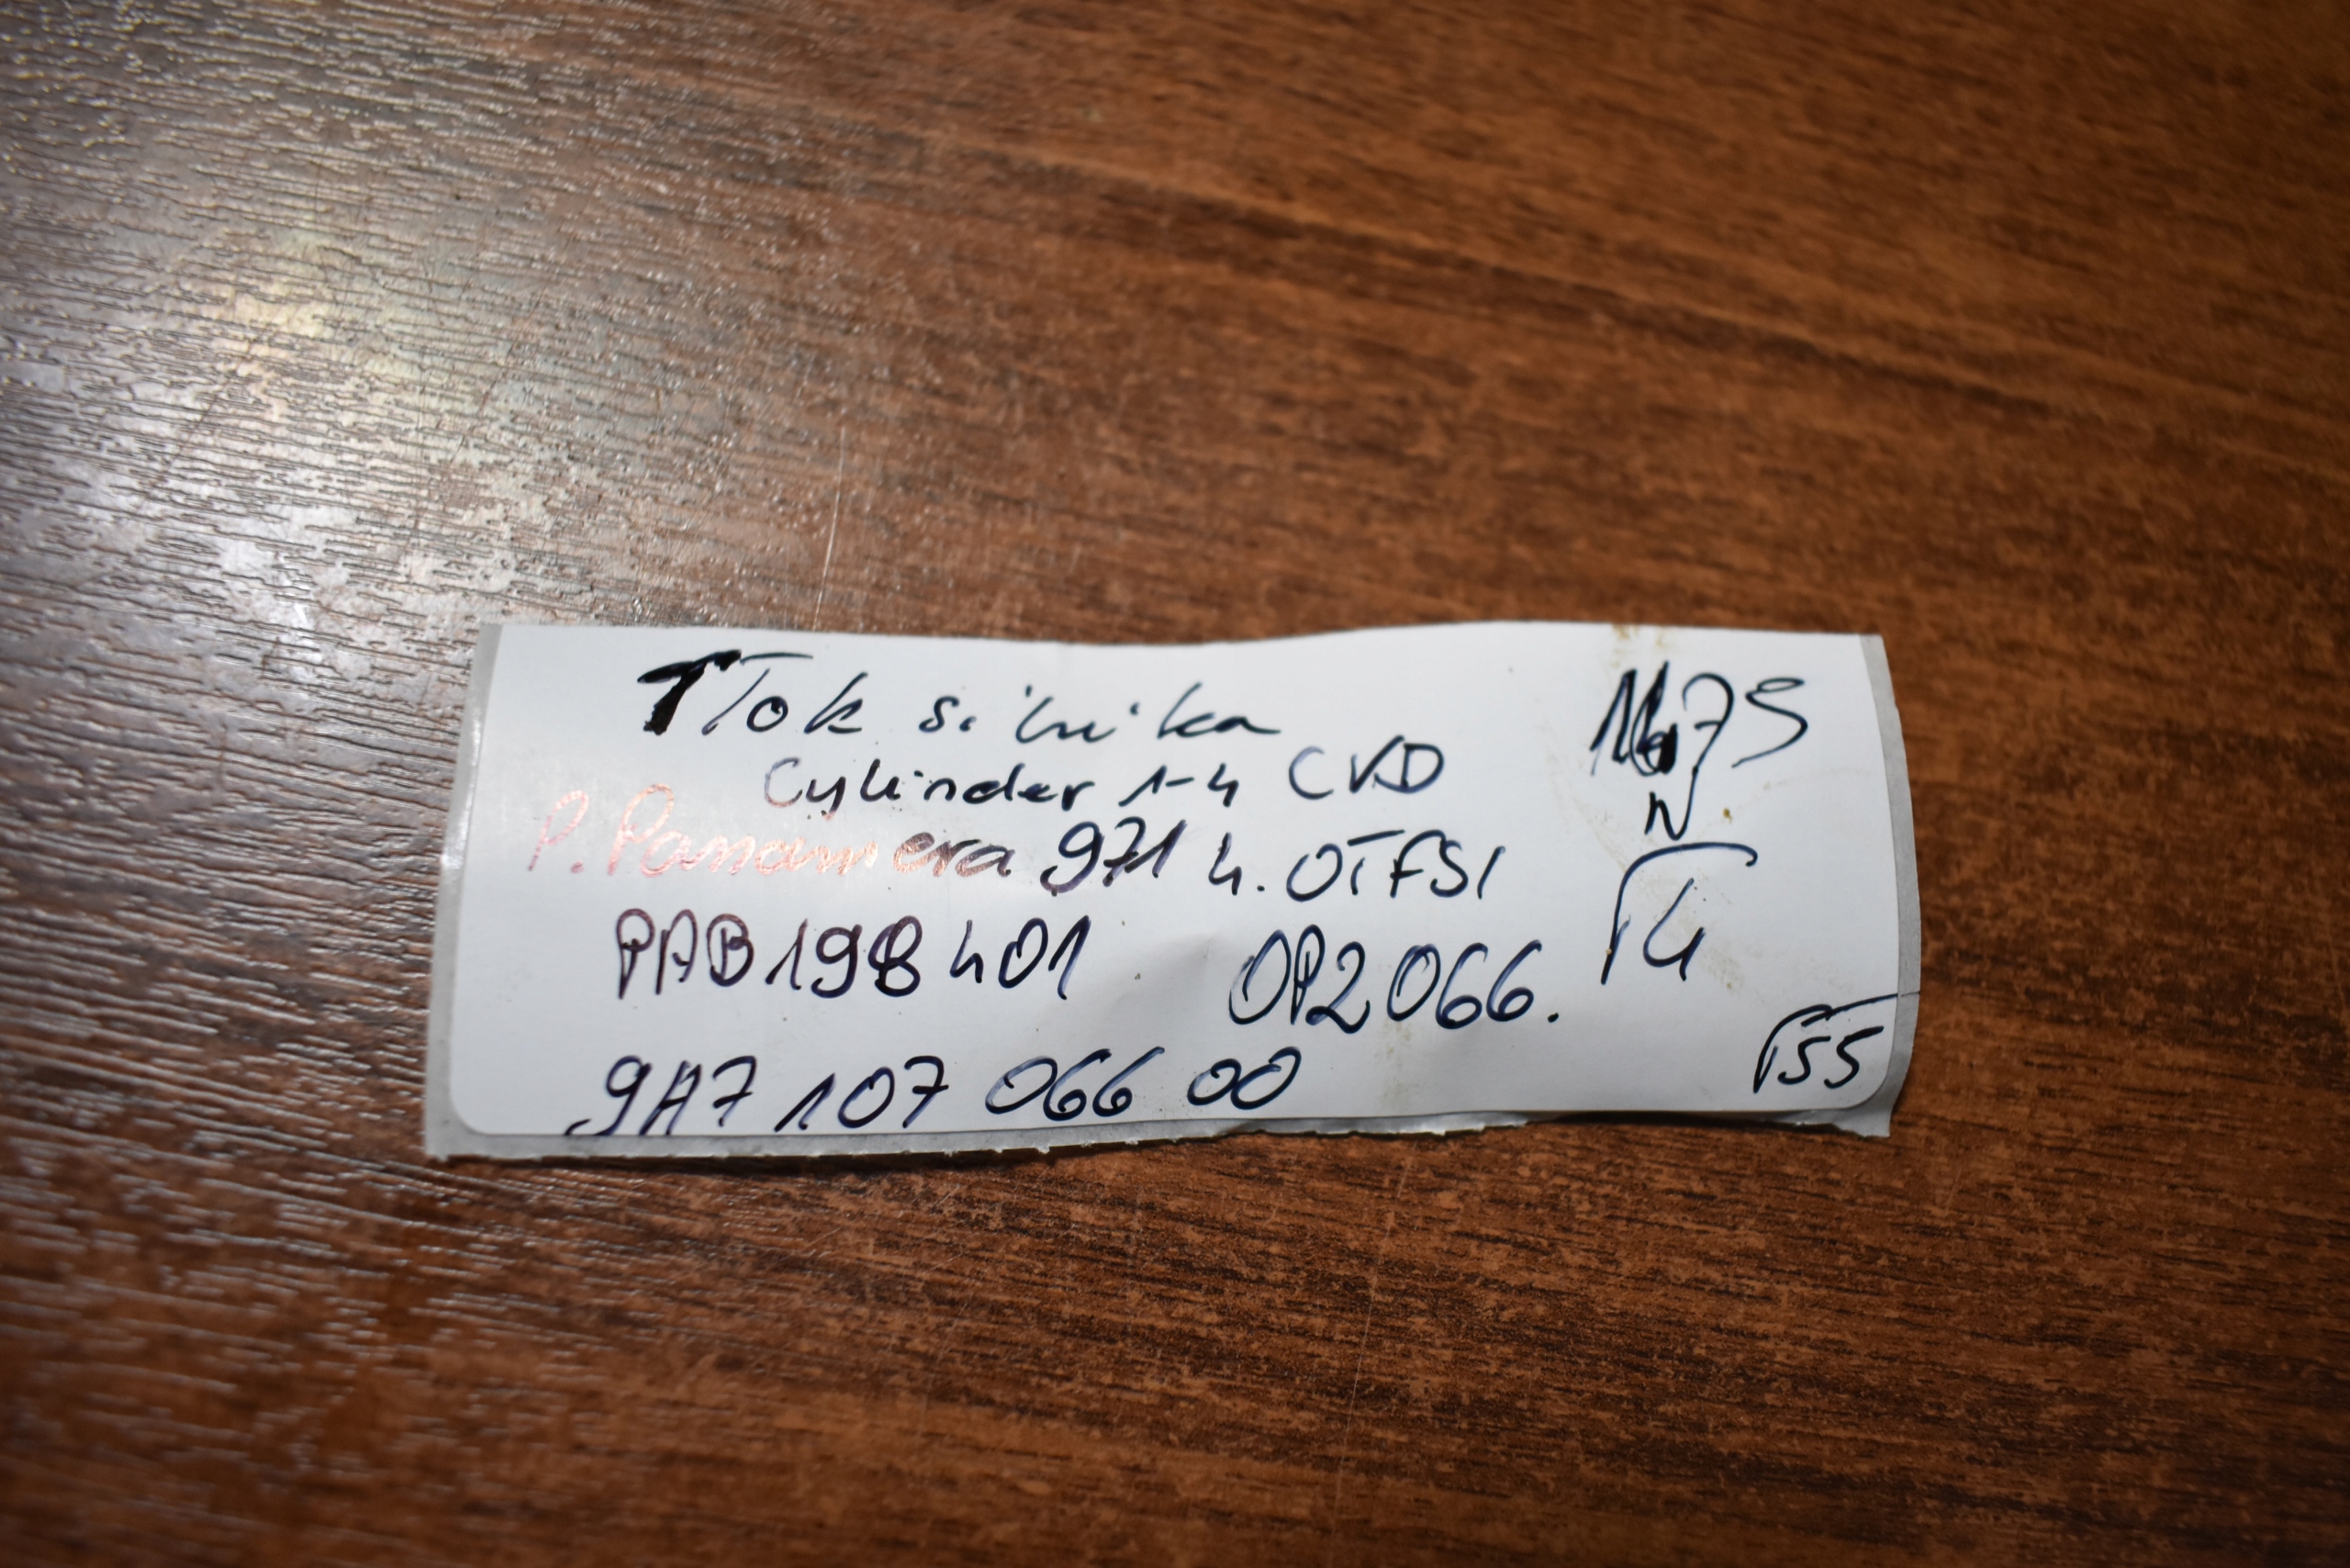 Tłok silnika
Cylinder 1-4 CVD
P. Panamera 971 4.0TFSI
PAB198401 0P2066.
9A7 107 066 00
N